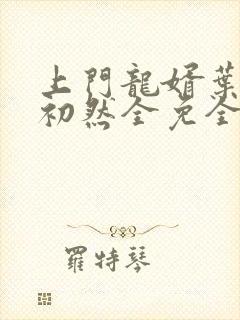 上門龍婿葉
初然全免全
羅特琴